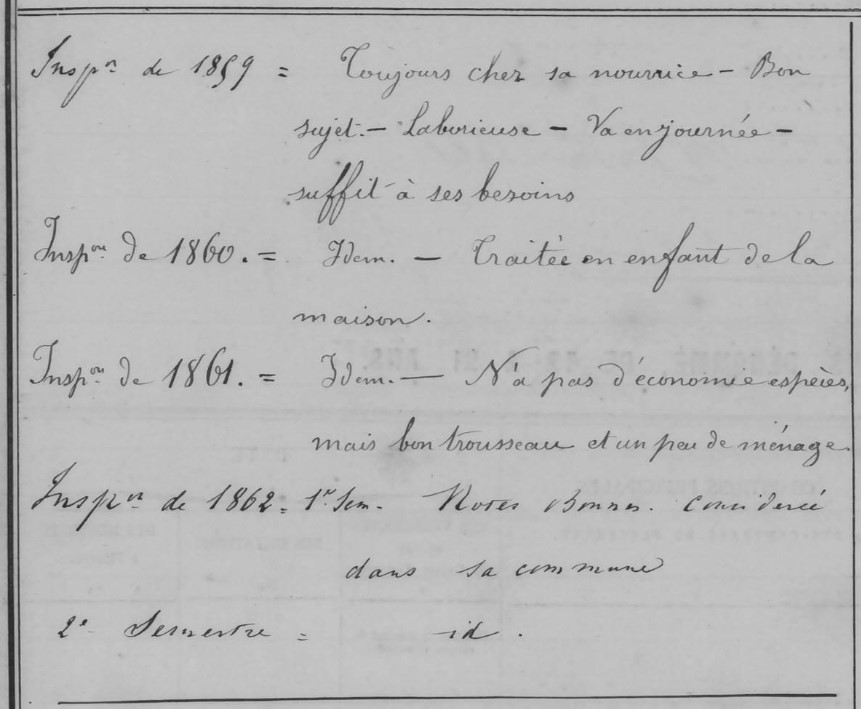 Insp<sup>on</sup> de 1859 = Toujours chez sa nourrice - Bon
sujet. - Laborieuse - Va en journée -
suffit à ses besoins
Insp<sup>on</sup> de 1860. = Idem. - Traitée en enfant de la
maison.
Insp<sup>on</sup> de 1861. = Idem. - N'a pas d'économie espèces,
mais bon trousseau et un peu de ménage.
Insp<sup>on</sup> de 1862 = 1<sup>r</sup> Sem. Notes Bonnes. Considerée
dans sa commune
2<sup>e</sup> Semestre = id.